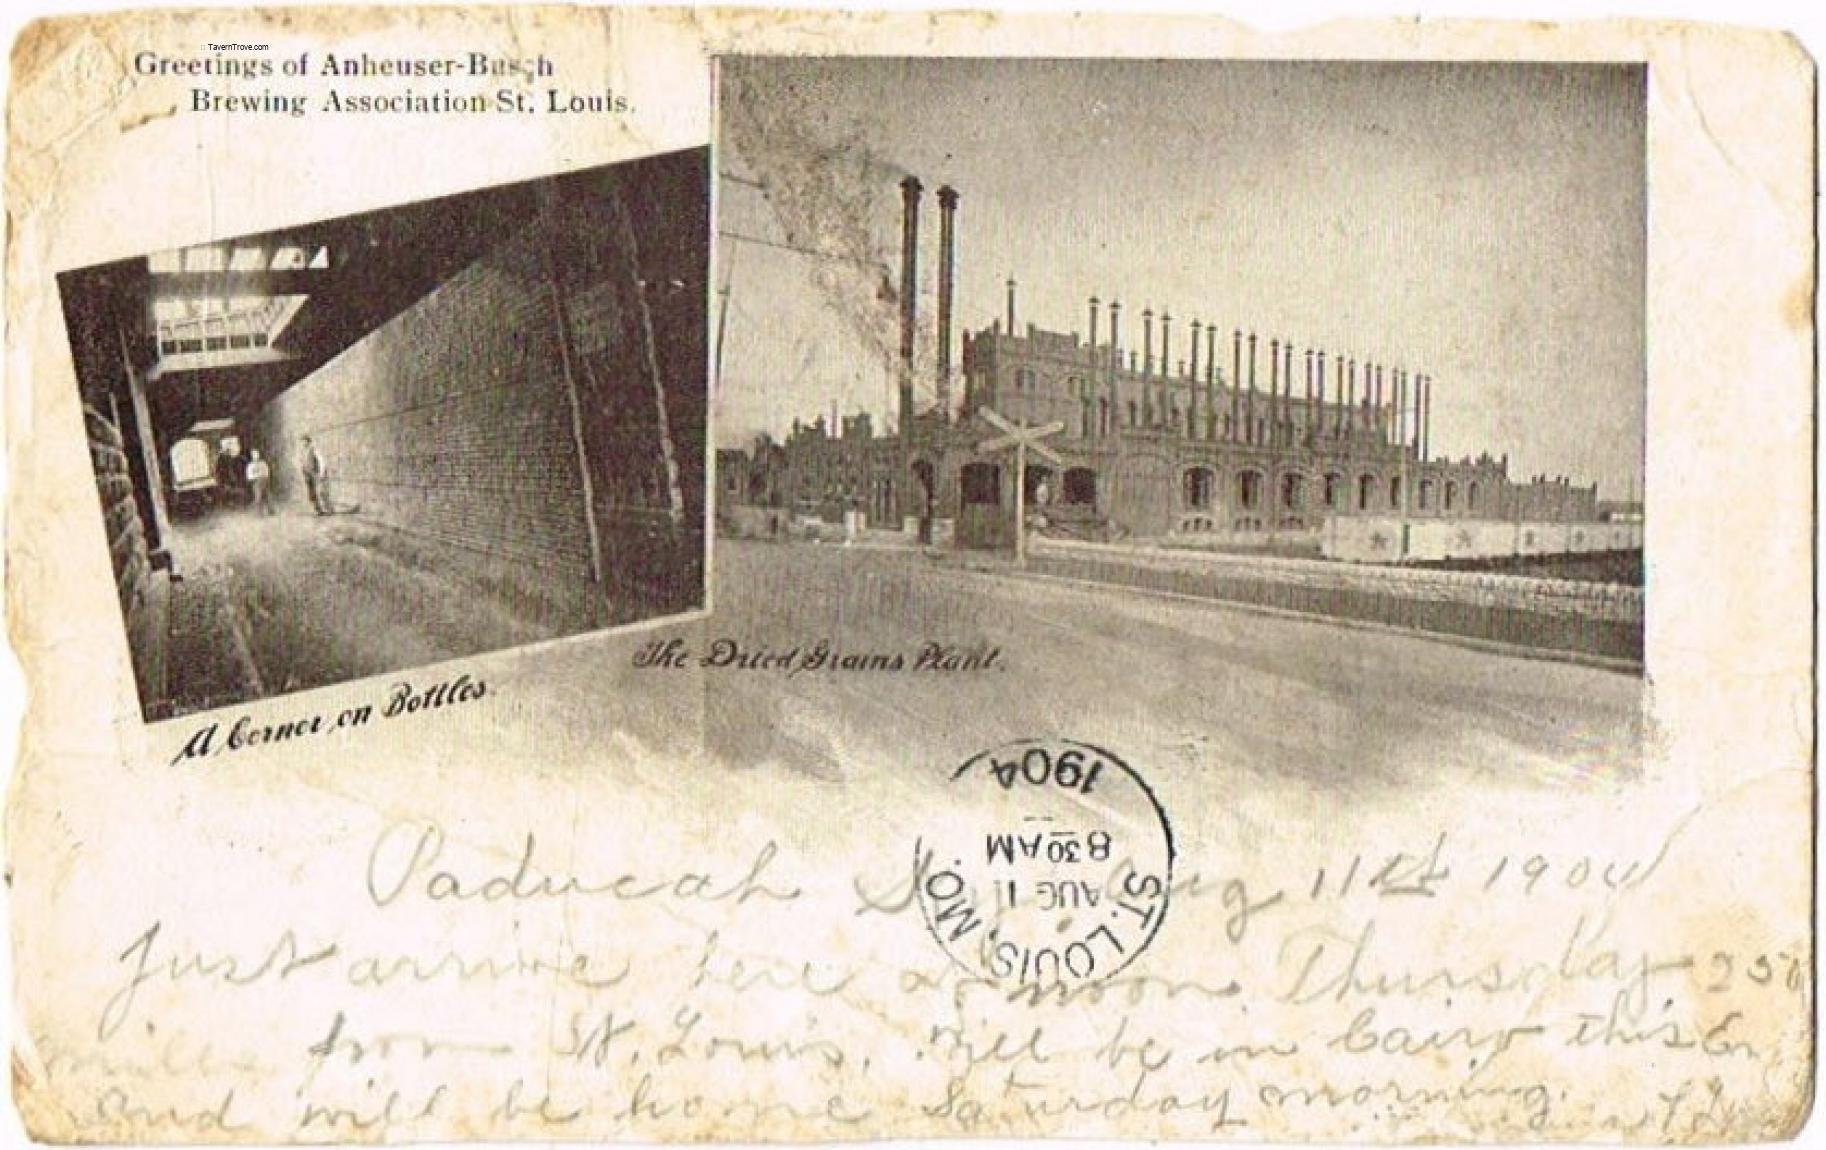 :: TavernTrove.com
Greetings of Anheuser-Busch
Brewing Association St. Louis.
A Corner on Bottles.
The Dried Grains Plant.
1904
8 30 AM
AUG 11
ST. LOUIS, MO.
Paducah Aug 11th 1904
Just arrive here at noon Thursday 250
miles from St. Louis. Will be in Cairo this
and will be home Saturday morning.